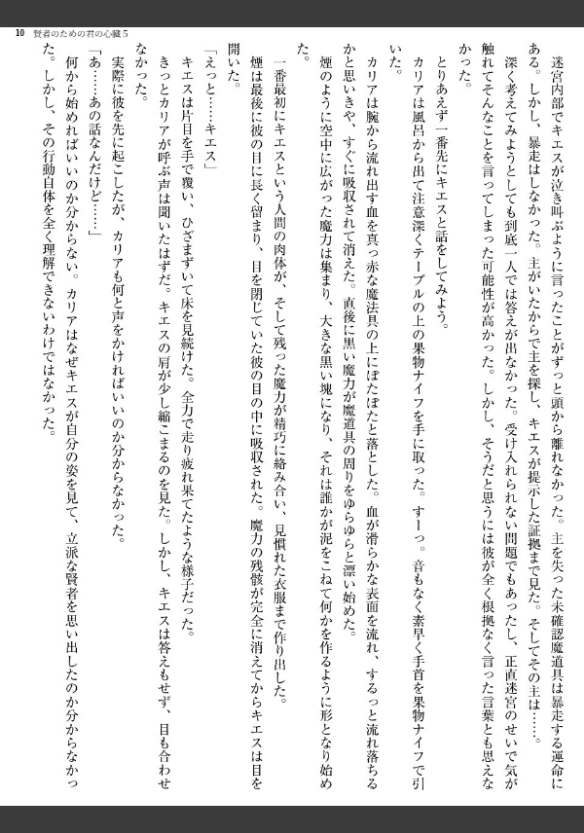 10 賢者のための君の心臓5
迷宮内部でキエスが泣き叫ぶように言ったことがずっと頭から離れなかった。主を失った未確認魔道具は暴走する運命に
ある。しかし、暴走はしなかった。主がいたからで主を探し、キエスが提示した証拠まで見た。そしてその主は……。
深く考えてみようとしても到底一人では答えが出なかった。受け入れられない問題でもあったし、正直迷宮のせいで気が
触れてそんなことを言ってしまった可能性が高かった。しかし、そうだと思うには彼が全く根拠なく言った言葉とも思えな
かった。
とりあえず一番先にキエスと話をしてみよう。
カリアは風呂から出て注意深くテーブルの上の果物ナイフを手に取った。すーっ。音もなく素早く手首を果物ナイフで引
いた。
カリアは腕から流れ出す血を真っ赤な魔法具の上にぽたぽたと落とした。血が滑らかな表面を流れ、するっと流れ落ちる
かと思いきや、すぐに吸収されて消えた。直後に黒い魔力が魔道具の周りをゆらゆらと漂い始めた。
煙のように空中に広がった魔力は集まり、大きな黒い塊になり、それは誰かが泥をこねて何かを作るように形となり始め
た。
一番最初にキエスという人間の肉体が、そして残った魔力が精巧に絡み合い、見慣れた衣服まで作り出した。
煙は最後に彼の目に長く留まり、目を閉じていた彼の目の中に吸収された。魔力の残骸が完全に消えてからキエスは目を
開いた。
「えっと……キエス」
キエスは片目を手で覆い、ひざまずいて床を見続けた。全力で走り疲れ果てたような様子だった。
きっとカリアが呼ぶ声は聞いたはずだ。キエスの肩が少し縮こまるのを見た。しかし、キエスは答えもせず、目も合わせ
なかった。
実際に彼を先に起こしたが、カリアも何と声をかければいいのか分からなかった。
「あ……あの話なんだけど……」
何から始めればいいのか分からない。カリアはなぜキエスが自分の姿を見て、立派な賢者を思い出したのか分からなかっ
た。しかし、その行動自体を全く理解できないわけではなかった。